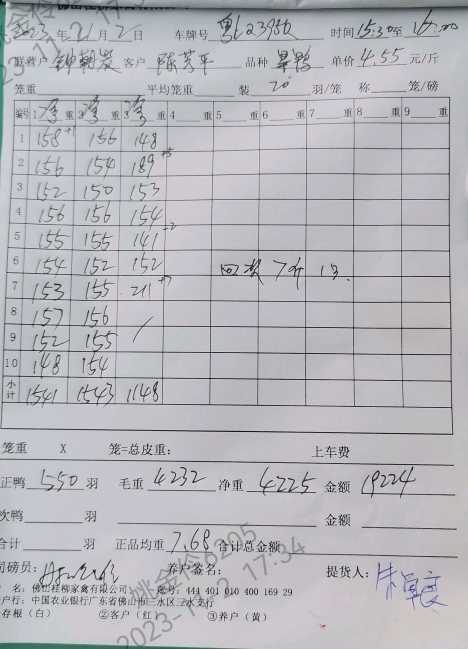 2023年11月2日 车牌号 粤L23980 时间15:30至16:00
联养户 钟朝炭 客户 陈芳平 品种 旱鸭 单价4.55元/斤
笼重 平均笼重 装 20 羽/笼 称 笼/磅
编号 1净重 2净重 3净重 4 重 5 重 6 重 7 重 8 重 9 重
1 158 +1 156 148
2 156 154 189 +5
3 152 150 153
4 156 156 154
5 155 155 141 +2
6 154 152 152
7 153 155 211 +7 7斤 1只
8 157 156
9 152 155 /
10 148 154
小计 1541 1543 1148
笼重 X 笼=总皮重: 上车费
正鸭 550 羽 毛重 4232 净重 4225 金额 19224
次鸭 羽 金额
合计 羽 正品均重 7.68 合计总金额
司磅员: 养户签名: 提货人:
名: 佛山桂柳家禽有限公司 账号: 444 401 010 400 169 29
户行: 中国农业银行广东省佛山市三水区三水支行
存根（白） ②客户（红） ③养户（黄）
姚金伶6205
2023-11-2 17:34